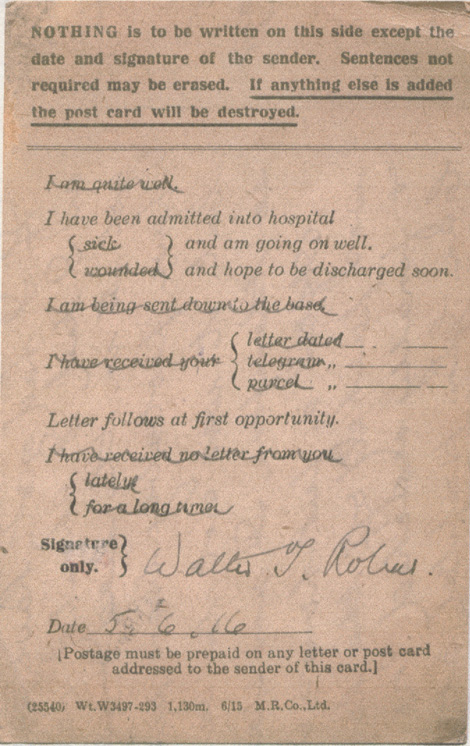 NOTHING is to be written on this side except the
date and signature of the sender. Sentences not
required may be erased. If anything else is added
the post card will be destroyed.
I am quite well.
I have been admitted into hospital
{ sick } and am going on well.
{ wounded } and hope to be discharged soon.
I am being sent down to the base
I have received your { letter dated
telegram „
parcel „
Letter follows at first opportunity.
I have received no letter from you
{ lately
{ for a long time.
Signature
only. } Walter T.
Date 5.6.16
[Postage must be prepaid on any letter or post card
addressed to the sender of this card.]
(25540) Wt.W3497-293 1,130m. 6/15 M.R.Co.,Ltd.